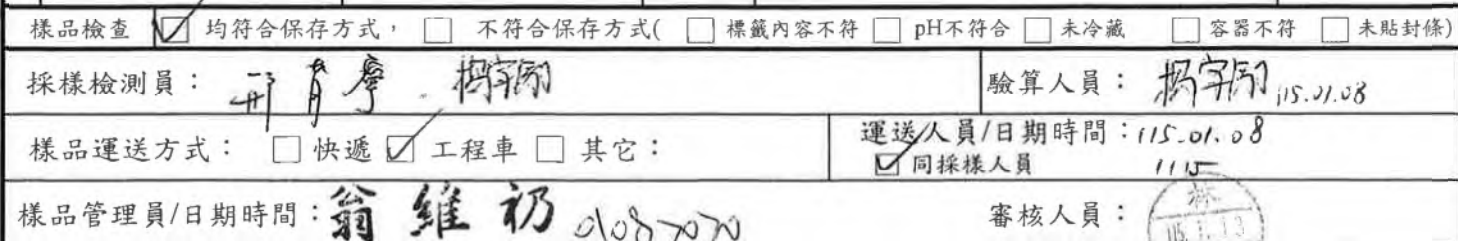 樣品檢查 ☑ 均符合保存方式, □ 不符合保存方式( □ 標籤內容不符 □ pH不符合 □ 未冷藏 □ 容器不符 □ 未貼封條)
採樣檢測員: 楊宇 驗算人員: 楊宇 115.01.08
樣品運送方式: □ 快遞 ☑ 工程車 □ 其它: 運送人員/日期時間: 115.01.08
☑ 同採樣人員 1115
樣品管理員/日期時間: 翁維礽 0108 2020 審核人員: 林
115.1.13